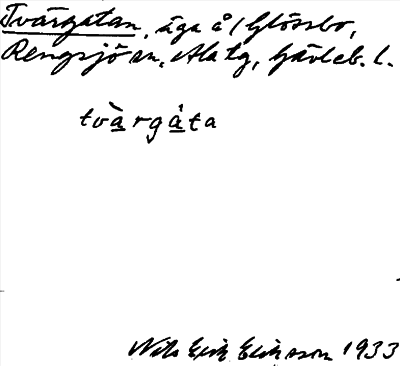 Tvärgatan, äga å / Glössbo,
Rengsjö sn, Ala tg, Gävleb. l.
tvàrgåta
Nils Erik Eliasson 1933